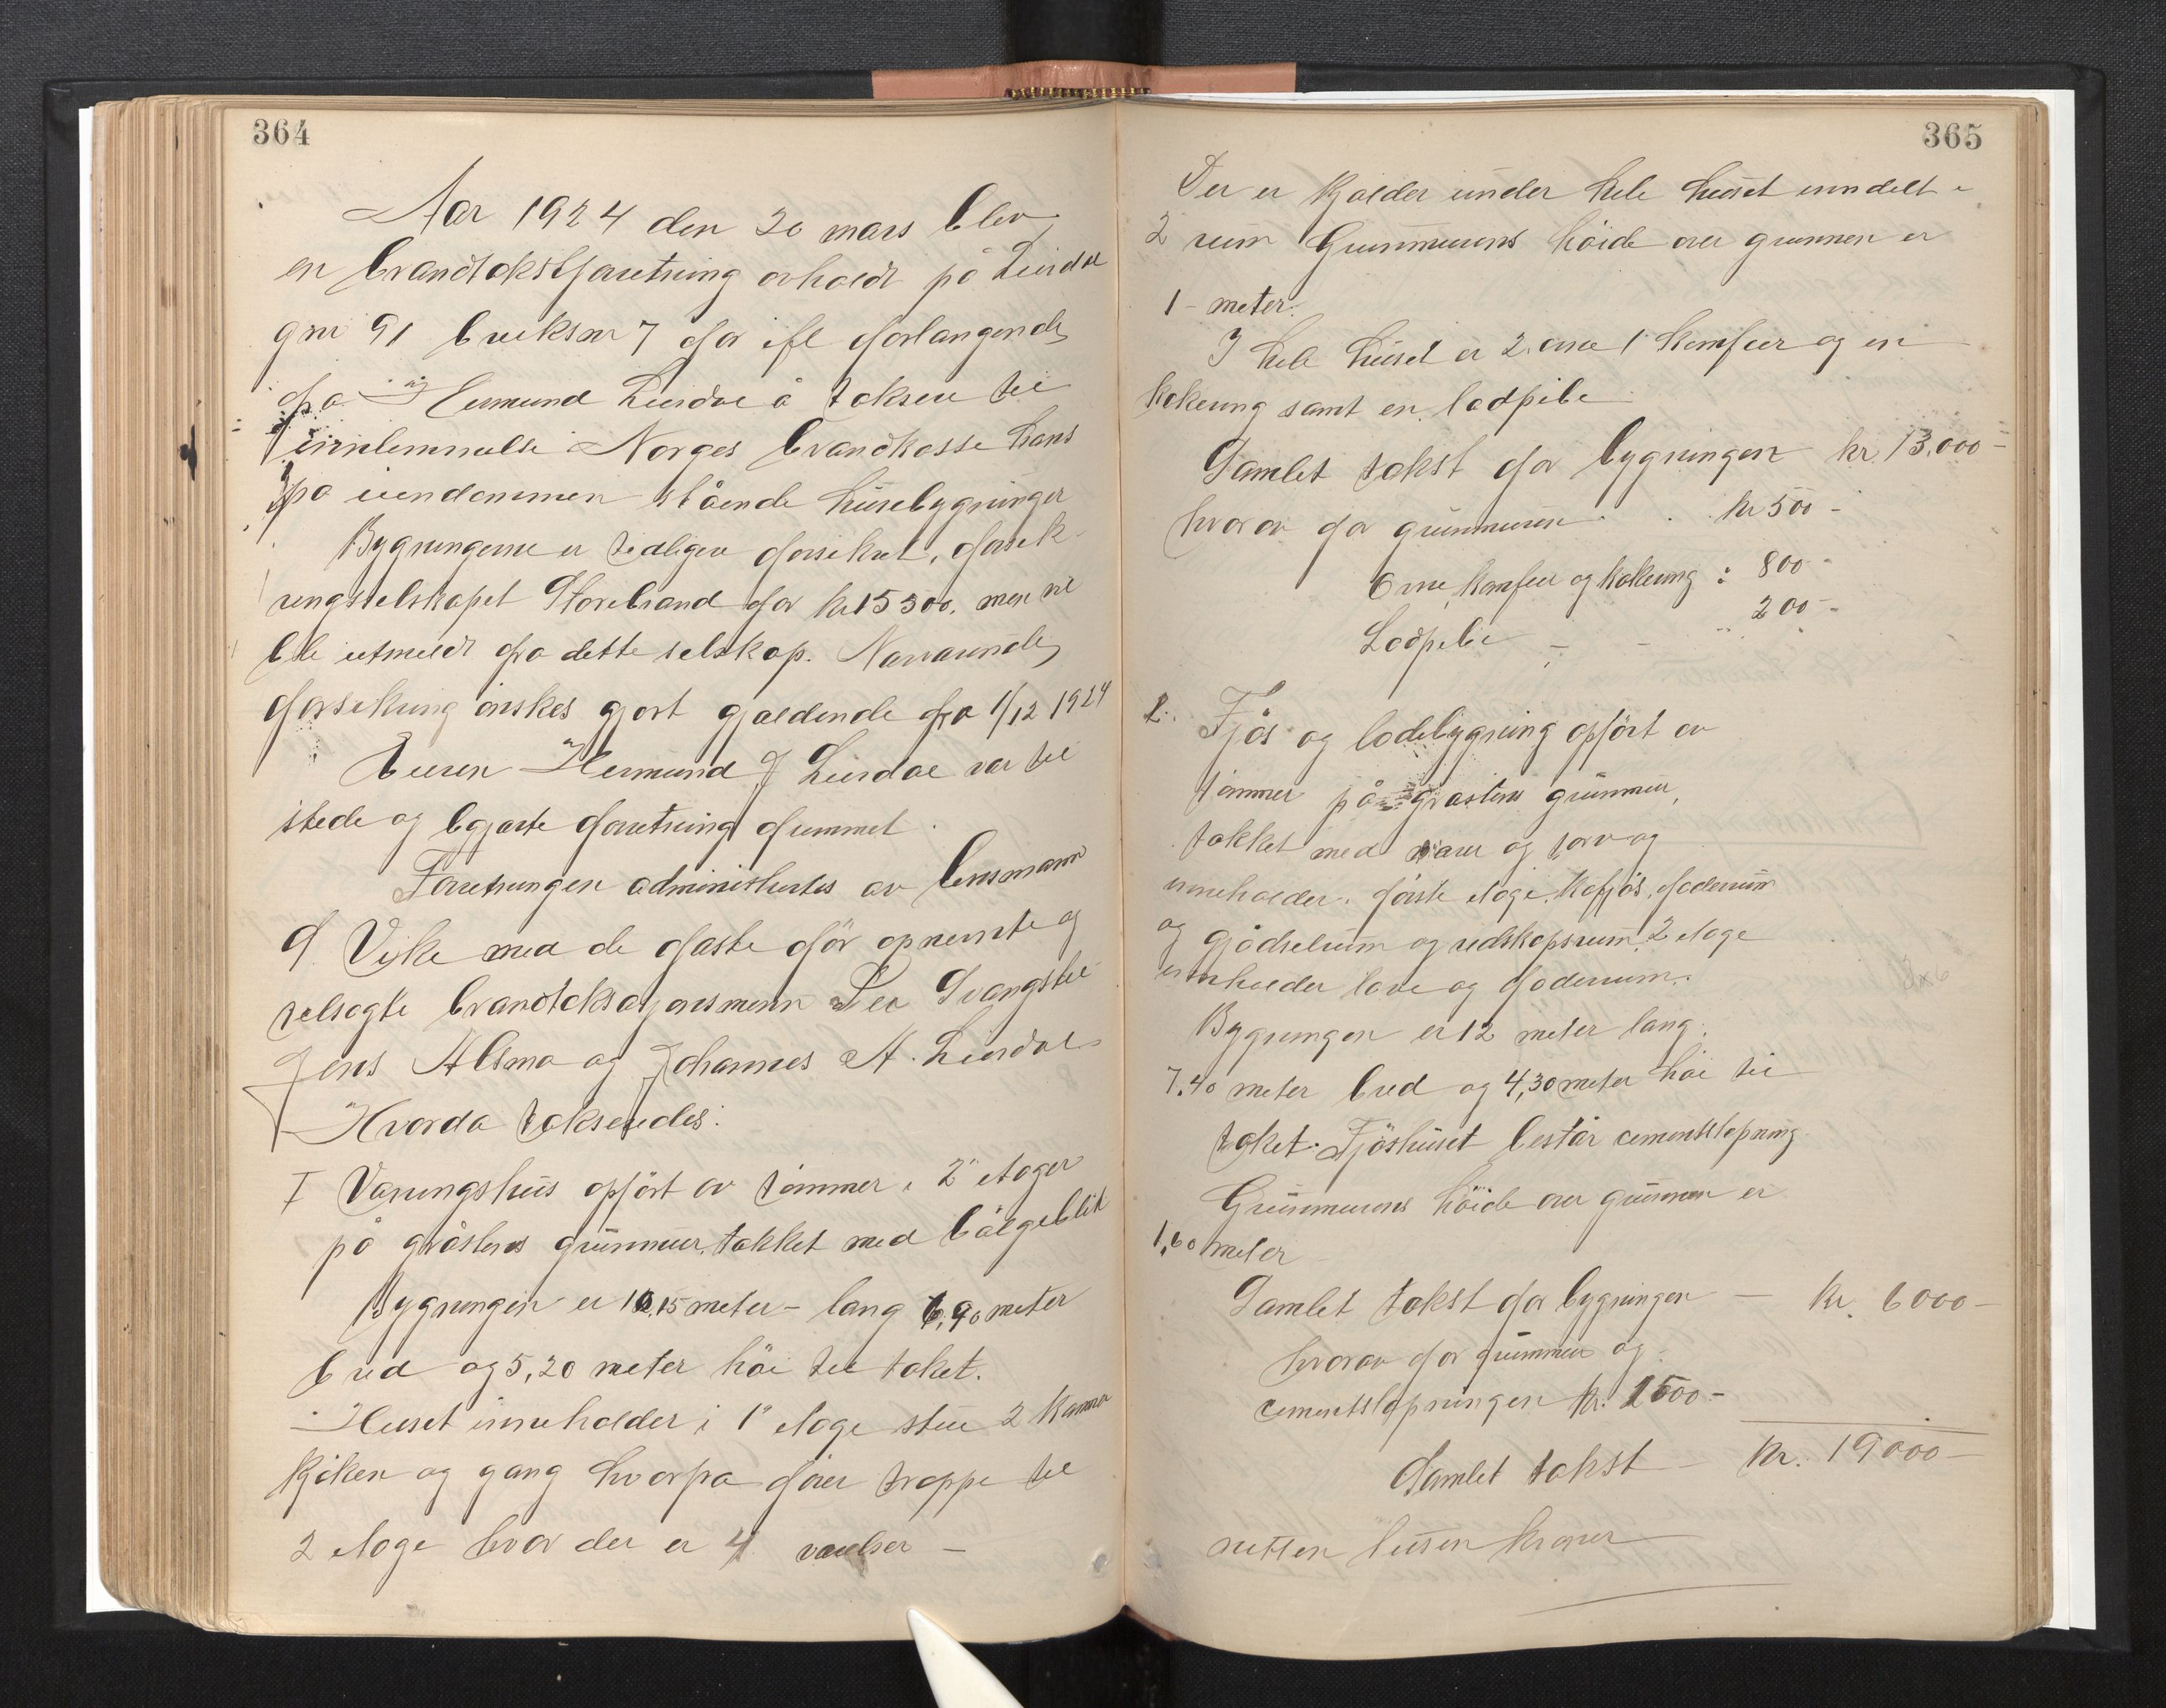 364
Aar 1924 den 20 mars blev
en brandtakstforretning avholdt på Liirdal
gnr 91 bruksnr 7 for ifl forlangende
fra Hermund Liirdal å taksere til
innlemmelse i Norges brandkasse hans
på eiendommen stående husebygninger
Bygningerne er tidligere forsikret i forsik-
ringsselskapet Storebrand for kr 15300, men vil
bli utmeldt fra dette selskap. Nærværende
forsikring ønskes gjort gjældende fra 1/12 1924
Eieren Hermund J Liirdal var til
stede og begjærte forretning fremmet.
Forretningen administrertes av lensmann
Vike med de faste før opnevnte og
velsagte brandtakstasjonsmenn Per Tvangstil
Jens Alsma og Johannes A. Liirdal
Hvorda takseredes:
I Vaaningshus opført av tømmer i 2 etager
på gråstens grunnmur, tækket med bølgeblik
Bygningen er 10,15 meter – lang 6,90 meter
bred og 5,20 meter høi til taket.
Huset inneholder i 1ste etage stue 2 kammer
kjøken og gang hvorfra fører trappe til
2 etage hvor der er 4 værelser –
365
Der er kjælder under hele huset inndelt i
2 rum Grunnmurens høide over grunnen er
1 – meter.
I hele huset er 2 ovne 1 komfur og en
kokeovn samt en lodpibe
Samlet takst for bygningen kr. 13.000 –
hvorav for grunnmuren . . kr 500 –
Ovne, komfur og kokeovn : 800 –
Lodpibe – – " 200 –
2. Fjøs og ladebygning opført av
tømmer på gråstens grunnmur,
tækket med næver og torv og
inneholder i første etage. Kofjøs, foderrum
og gjødselrum og redskapsrum. 2 etage
innholder lave og foderrum.
Bygningen er 12 meter lang.
7.40 meter bred og 4,30 meter høi til
taket. Fjøshuset består cementstøpning
Grunnmurens høide over grunnen er
1,60 meter
Samlet takst for bygningen – kr. 6000 –
hvorav for grunnmur og
cementstøpningen kr. 1500 –
Samlet takst – kr. 19000 –
nitten tusen kroner